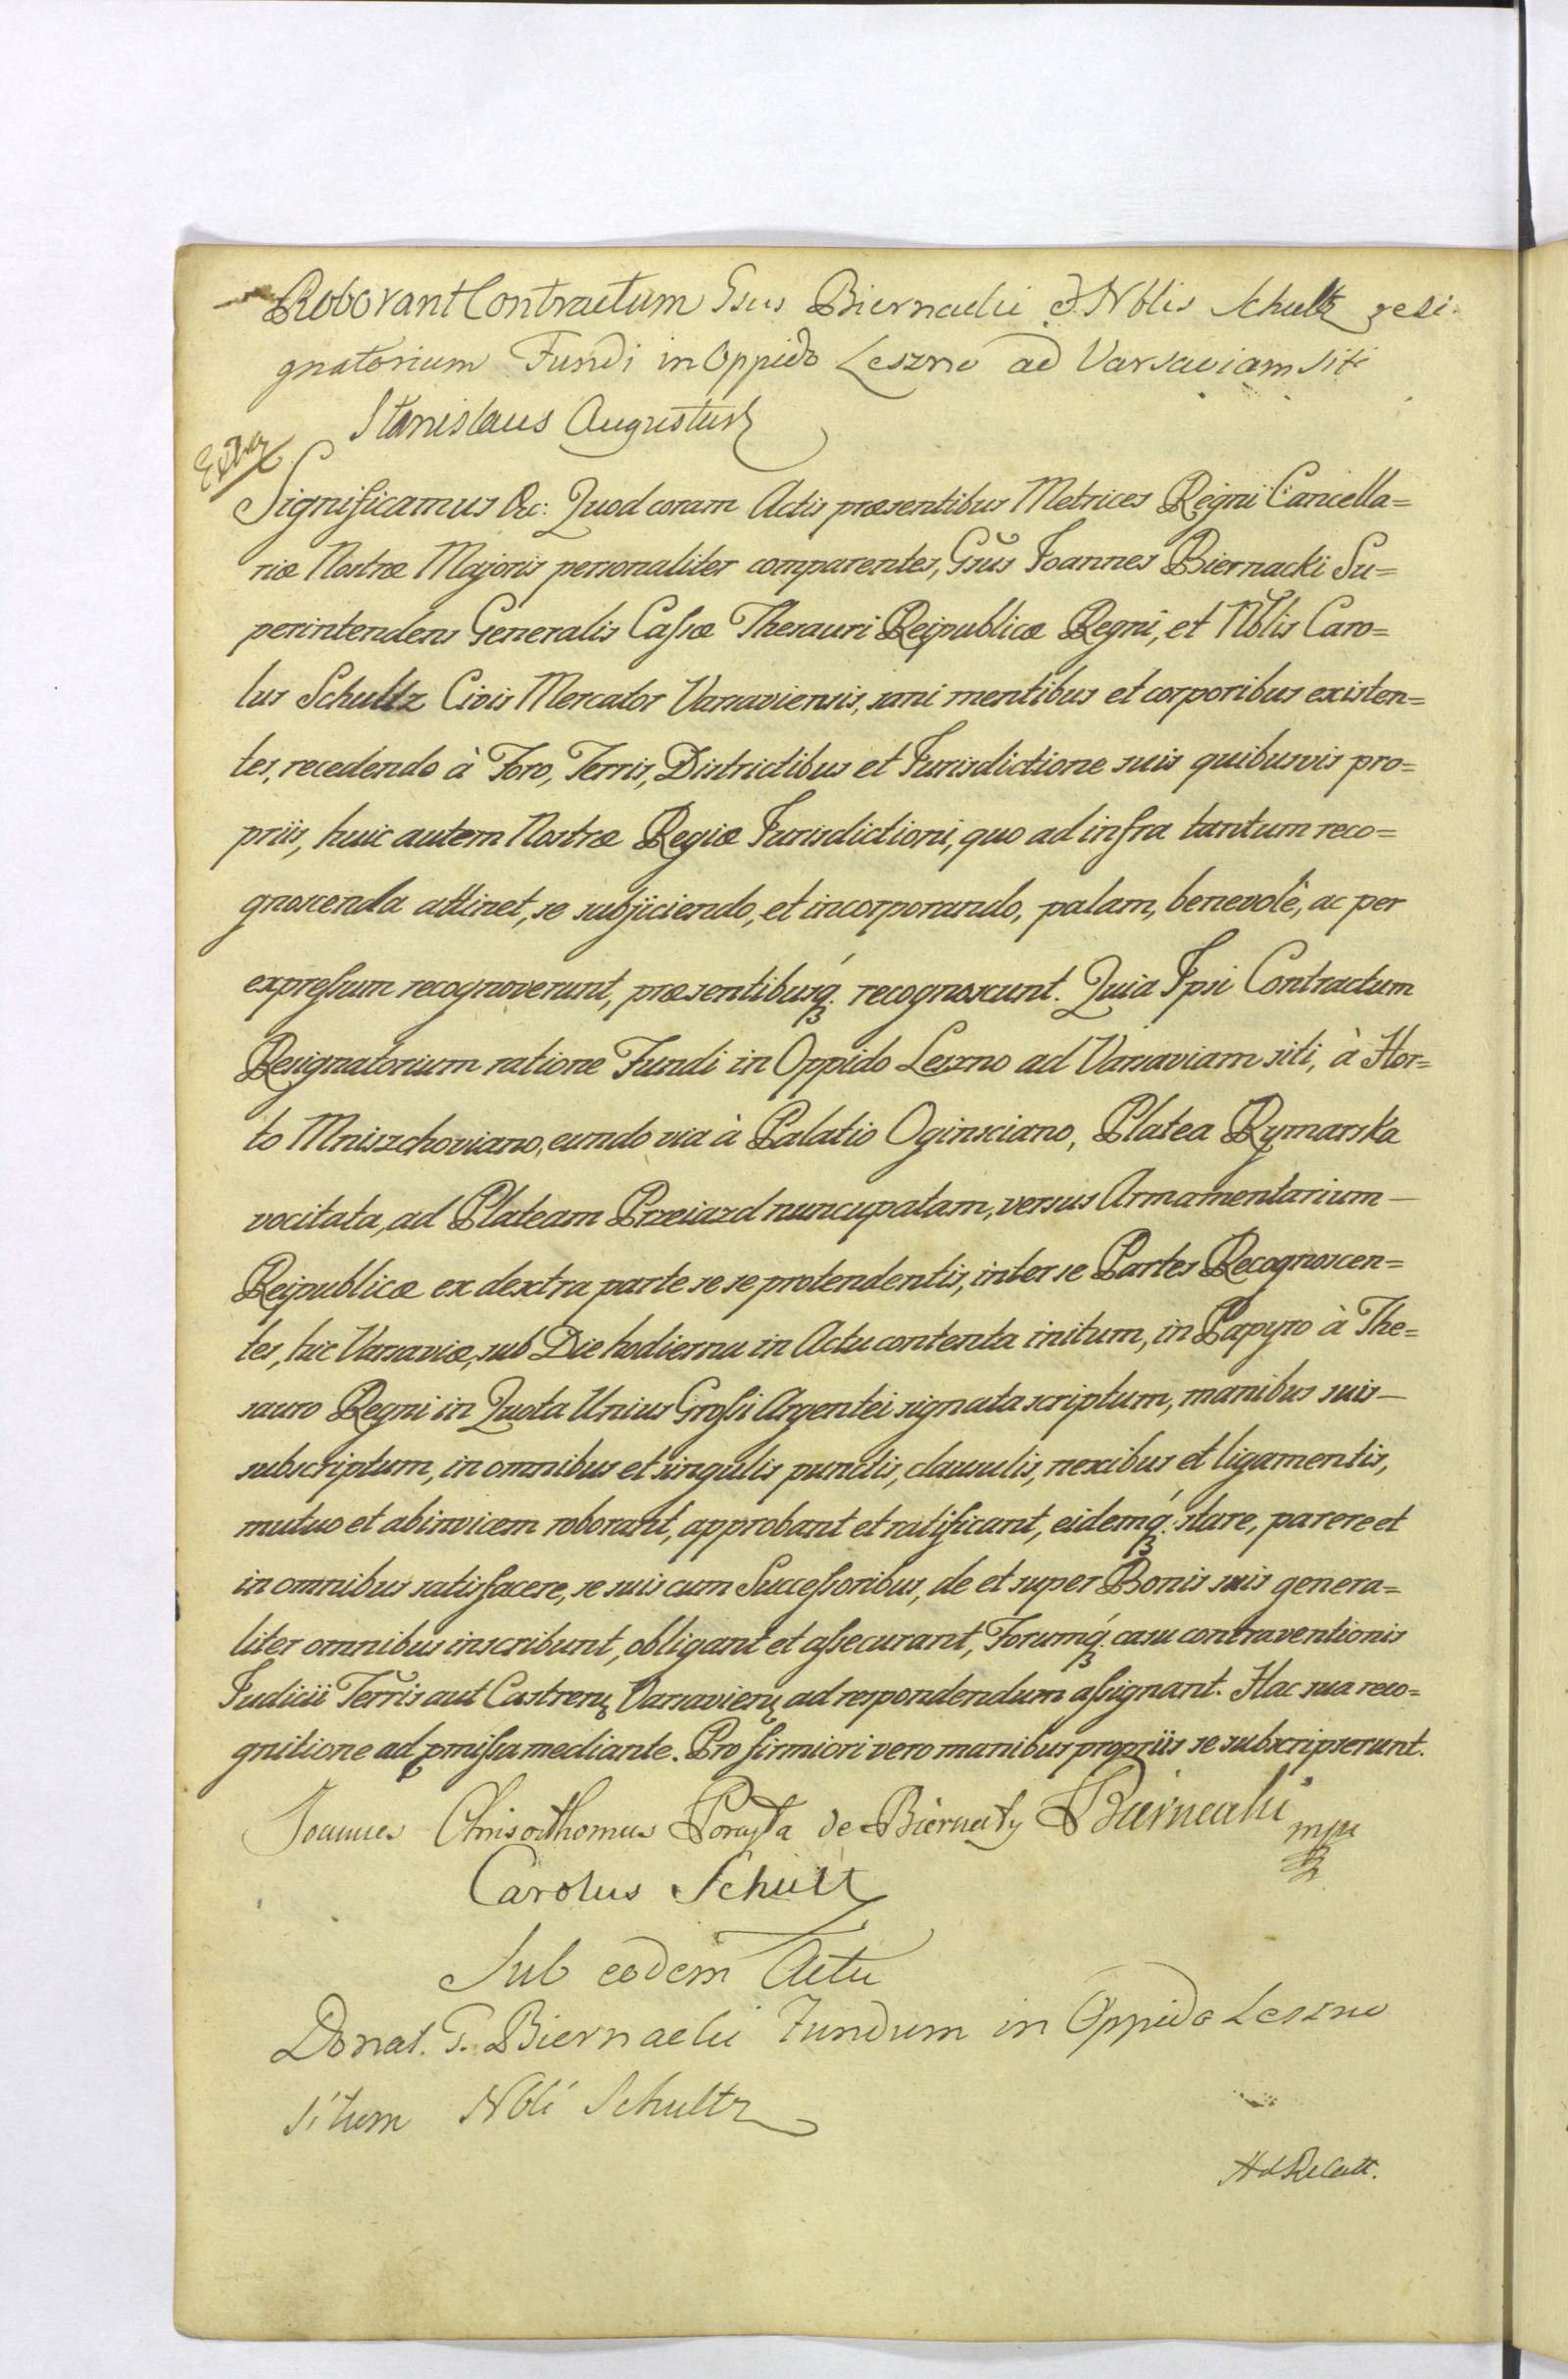 Roborant Contractum Gsus Biernacki & Nblis Schultz resi-
gnatorium Fundi in Oppido Leszno ad Varsaviam siti
Stanislaus Augustus
Significamus &c: Quod coram Actis præsentibus Metrices Regni Cancella=
riæ Nostræ Majoris personaliter comparentes, Gsũs Joannes Biernacki Su=
perintendens Generalis Cassæ Thesauri Reipublicæ Regni, et Nblis Caro=
lus Schultz Civis Mercator Varsaviensis, sani mentibus et corporibus existen=
tes, recedendo à Foro, Terris, Districtibus et Jurisdictione suis quibusvis pro=
priis, huic autem Nostræ Regiæ Jurisdictioni, quo ad infra tantum reco=
gnoscenda attinet, se subjiciendo, et incorporando, palam, benevolè, ac per
expressum recognoverunt, præsentibusq́ȝ recognoscunt. Quia Ipsi Contractum
Resignatorium ratione Fundi in Oppido Leszno ad Varsaviam siti, à Hor=
to Mniszchoviano, eundo via à Palatio Oginsciano, Platea Rymarska
vocitata, ad Plateam Przeiazd nuncupatam, versus Armamentarium —
Reipublicæ ex dextra parte se se protendentis, inter se Partes Recognoscen=
tes, hic Varsaviæ, sub Die hodierna in Actu contenta initum, in Papyro à The=
sauro Regni in Quota Unius Grossi Argentei signata scriptum, manibus suis —
subscriptum, in omnibus et singulis punctis, clausulis, nexibus et ligamentis,
mutuo et abinvicem roborant, approbant et ratificant, eidemq́ȝ stare, parere et
in omnibus satisfacere, se suis cum Successoribus, de et super Bonis suis genera=
liter omnibus inscribunt, obligant et assecurant, Forumq́ȝ casu contraventionis
Judicii Terris aut Castrenș Varsavienș ad respondendum assignant. Hac sua reco=
gnitione ad pmissa mediante. Pro firmiori vero manibus propriis se subscripserunt.
Joannes Chrisosthomus de Biernaty Biernacki mpa
Carolus Schultz
Sub eodem Actu
Donat. G. Biernacki Fundum in Oppido Leszno
situm Nbli Schultz